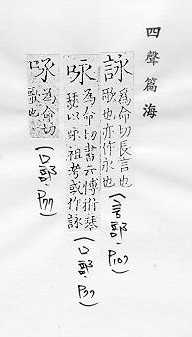 四聲篇海
詠 為命切長言也
歌也亦作永也
(言部,P107)
咏 為命切書云愽拊琴
瑟以咏祖考或作詠
(口部,P77)
㕲 為命切
歌也
(口部,P77)